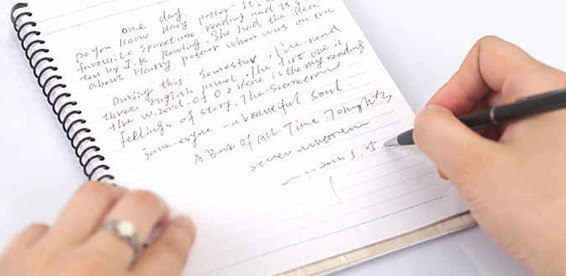 one day,
Do you know Harry Potter It is
favourite sparetime reading and it is
ten by J.K Rowling. She had the idea
about Harry Potter when was on the
During this semester I've read
three English novel. the first one is
the wizard of Oz Here is the my reading
feelings of story. The
Jane eyre - a beautiful soul
A Book of All Time